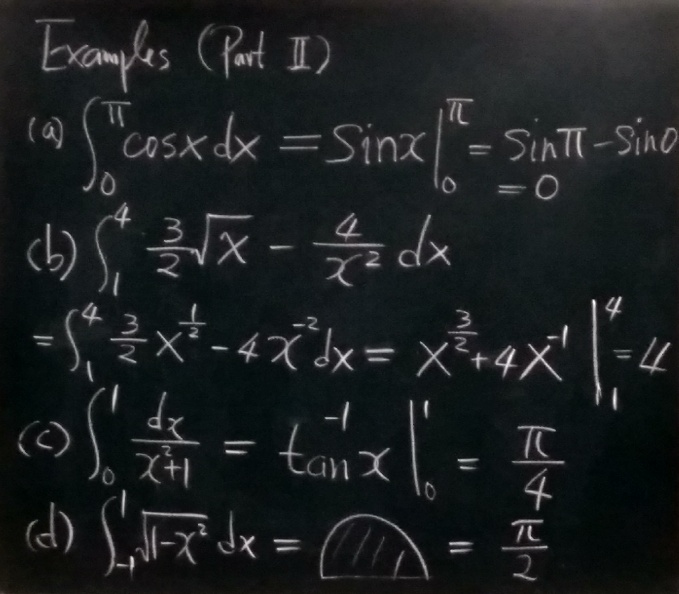 Examples (Part II)
(a) ∫₀^π cosx dx = Sinx |₀^π = Sinπ - Sin0
= 0
(b) ∫₁⁴ 3/2 √x - 4/x² dx
= ∫₁⁴ 3/2 x^(1/2) - 4x^(-2) dx = x^(3/2) + 4x^(-1) |₁⁴ = 4
(c) ∫₀¹ dx/(x²+1) = tan⁻¹x |₀¹ = π/4
(d) ∫₋₁¹ √(1-x²) dx = = π/2